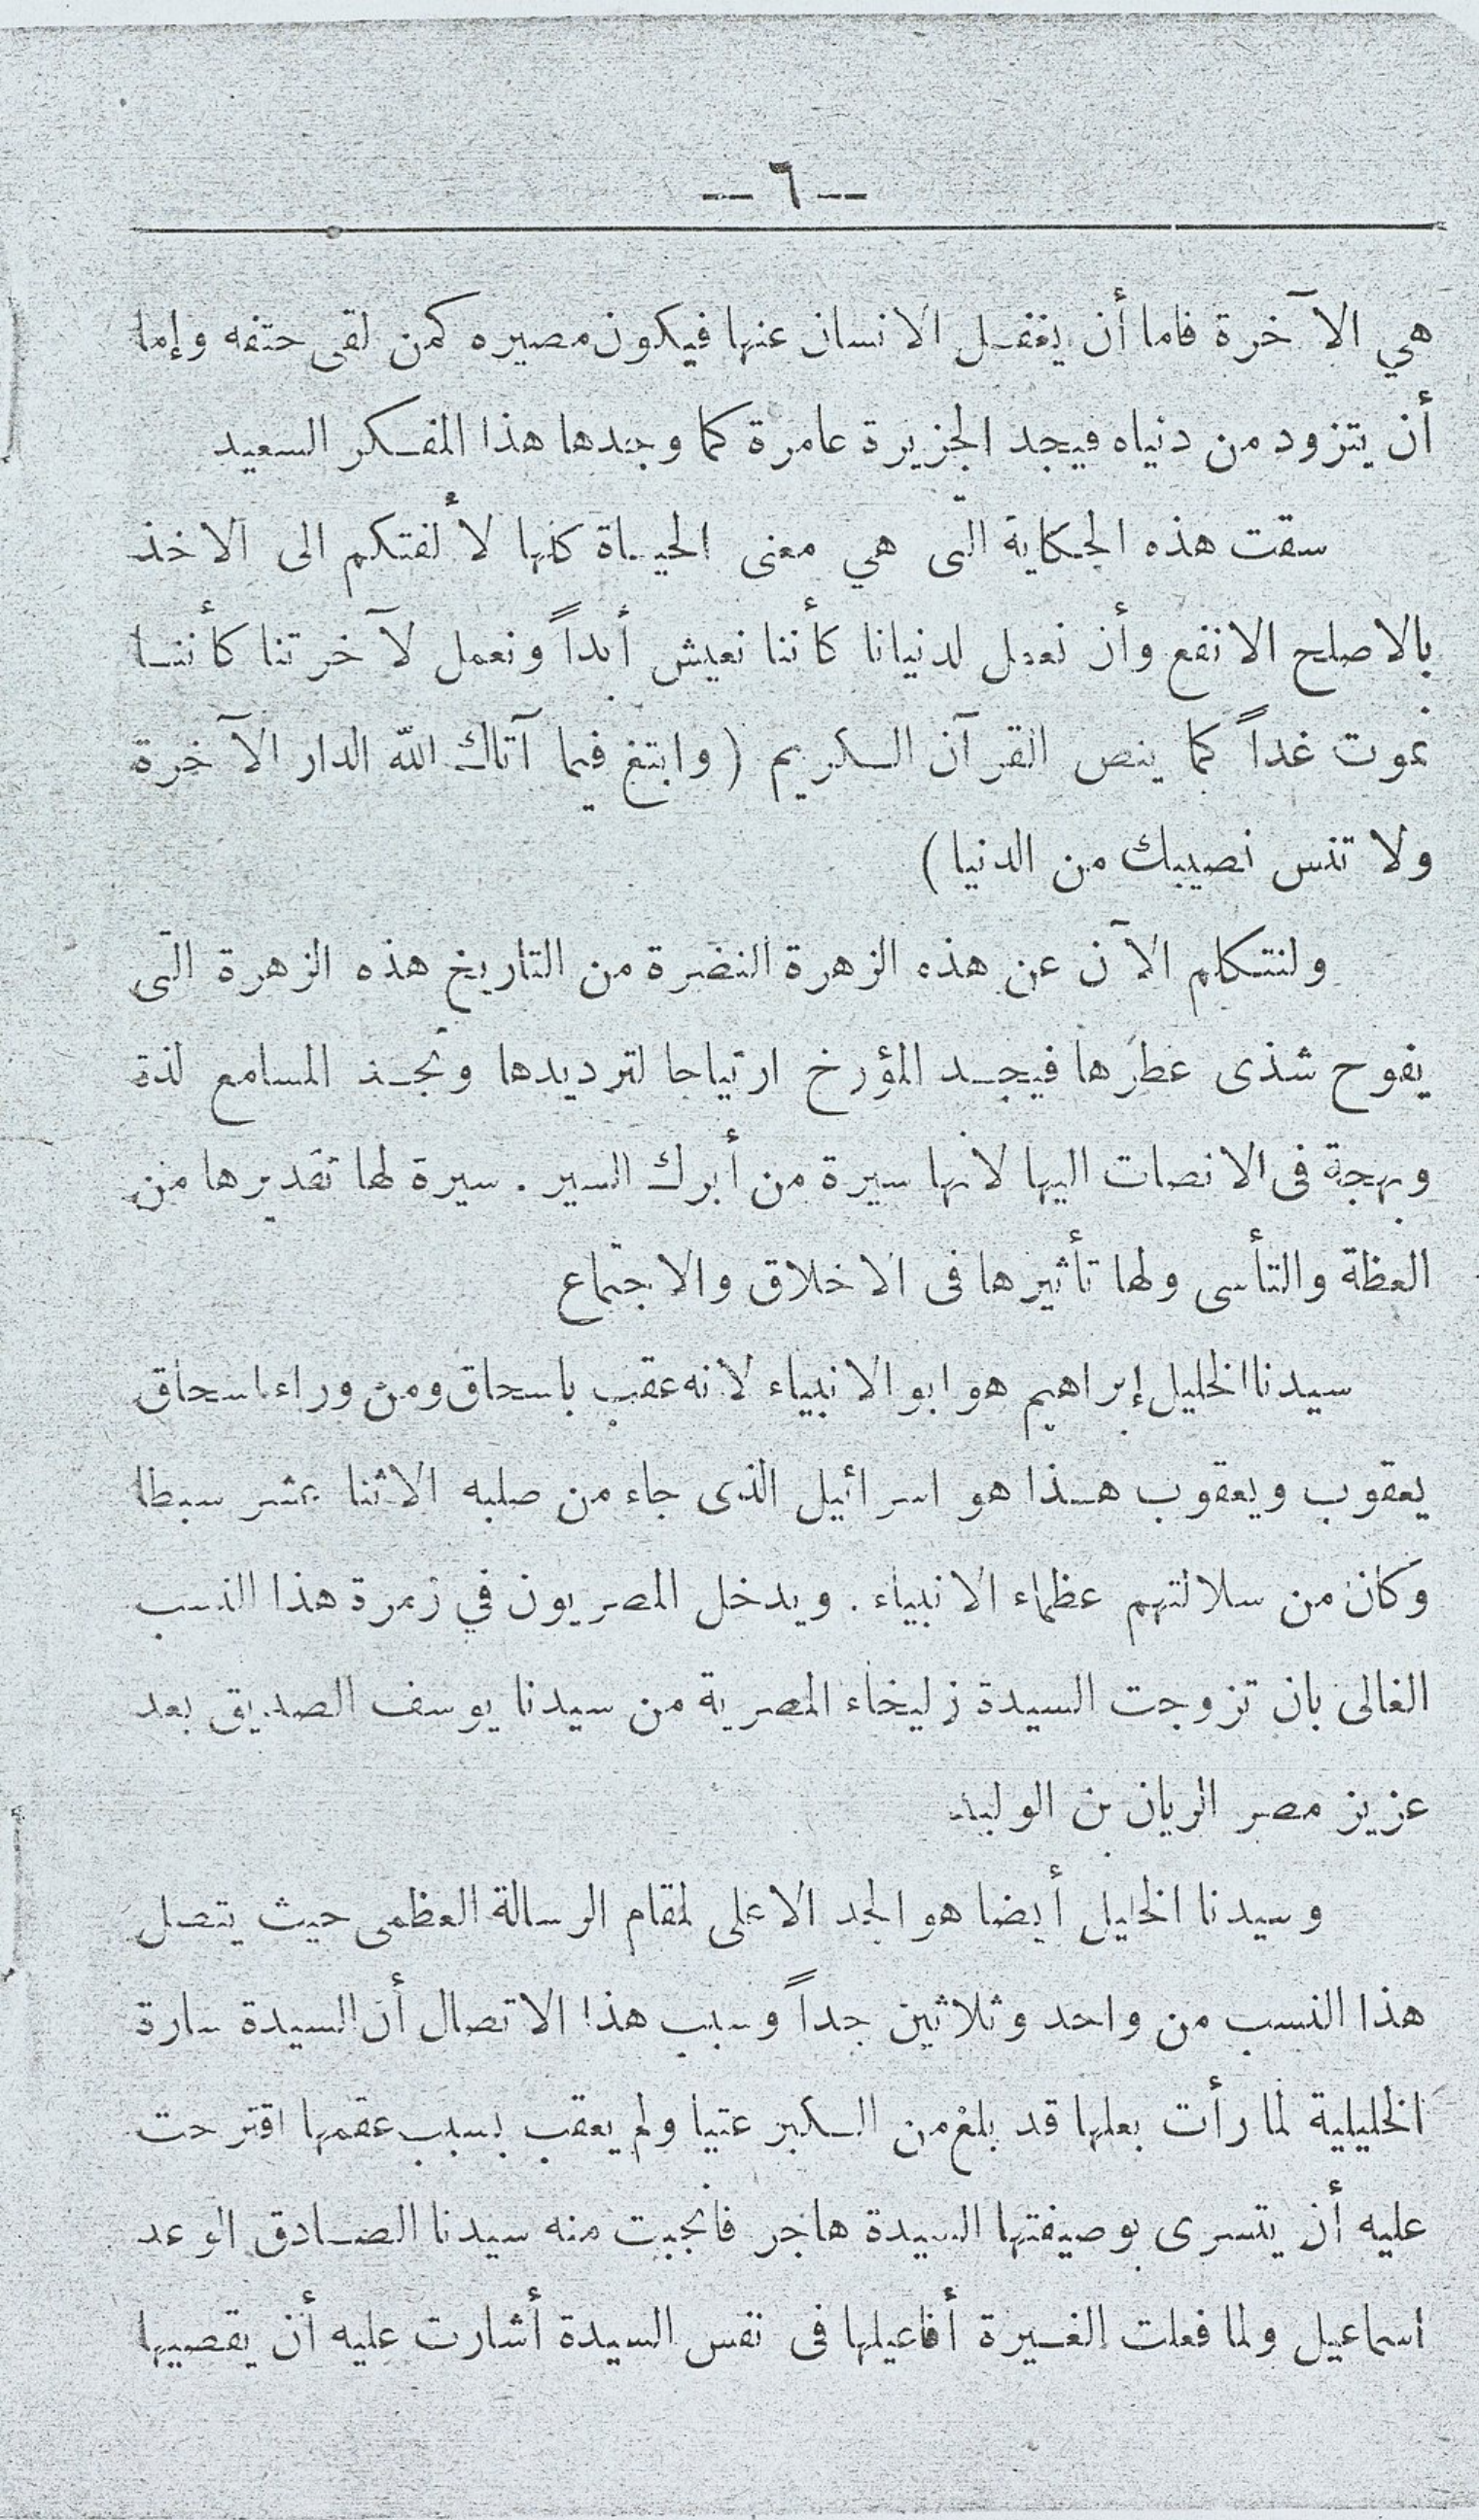 — ٦ —
هي الآخرة فاما أن يغفل الانسان عنها فيكون مصيره كمن لقى حتفه وإما
أن يتزود من دنياه فيجد الجزيرة عامرة كما وجدها هذا المفكر السعيد
سقت هذه الحكاية التى هي معنى الحياة كلها لألفتكم الى الاخذ
بالاصلح الانفع وأن نعمل لدنيانا كأننا نعيش أبداً ونعمل لآخرتنا كأننا
نموت غداً كما ينص القرآن الكريم (وابتغ فيما آتاك الله الدار الآخرة
ولا تنس نصيبك من الدنيا)
ولنتكلم الآن عن هذه الزهرة النضرة من التاريخ هذه الزهرة التى
يفوح شذى عطرها فيجد المؤرخ ارتياحا لترديدها وتجد المسامع لذة
وبهجة فى الانصات اليها لانها سيرة من أبرك السير . سيرة لها تقديرها من
العظة والتأسى ولها تأثيرها فى الاخلاق والاجتماع
سيدنا الخليل إبراهيم هو ابو الانبياء لانه عقب باسحاق ومن وراء اسحاق
يعقوب ويعقوب هذا هو اسرائيل الذى جاء من صلبه الاثنا عشر سبطا
وكان من سلالتهم عظماء الانبياء . ويدخل المصريون في زمرة هذا النسب
الغالى بان تزوجت السيدة زليخاء المصرية من سيدنا يوسف الصديق بعد
عزيز مصر الريان بن الوليد
وسيدنا الخليل أيضا هو الجد الاعلى لمقام الرسالة العظمى حيث يتصل
هذا النسب من واحد وثلاثين جداً وسبب هذا الاتصال أن السيدة سارة
الخليلية لما رأت بعلها قد بلغ من الكبر عتيا ولم يعقب بسبب عقمها اقترحت
عليه أن يتسرى بوصيفتها السيدة هاجر فانجبت منه سيدنا الصادق الوعد
اسماعيل ولما فعلت الغيرة أفاعيلها فى نفس السيدة أشارت عليه أن يقصيها